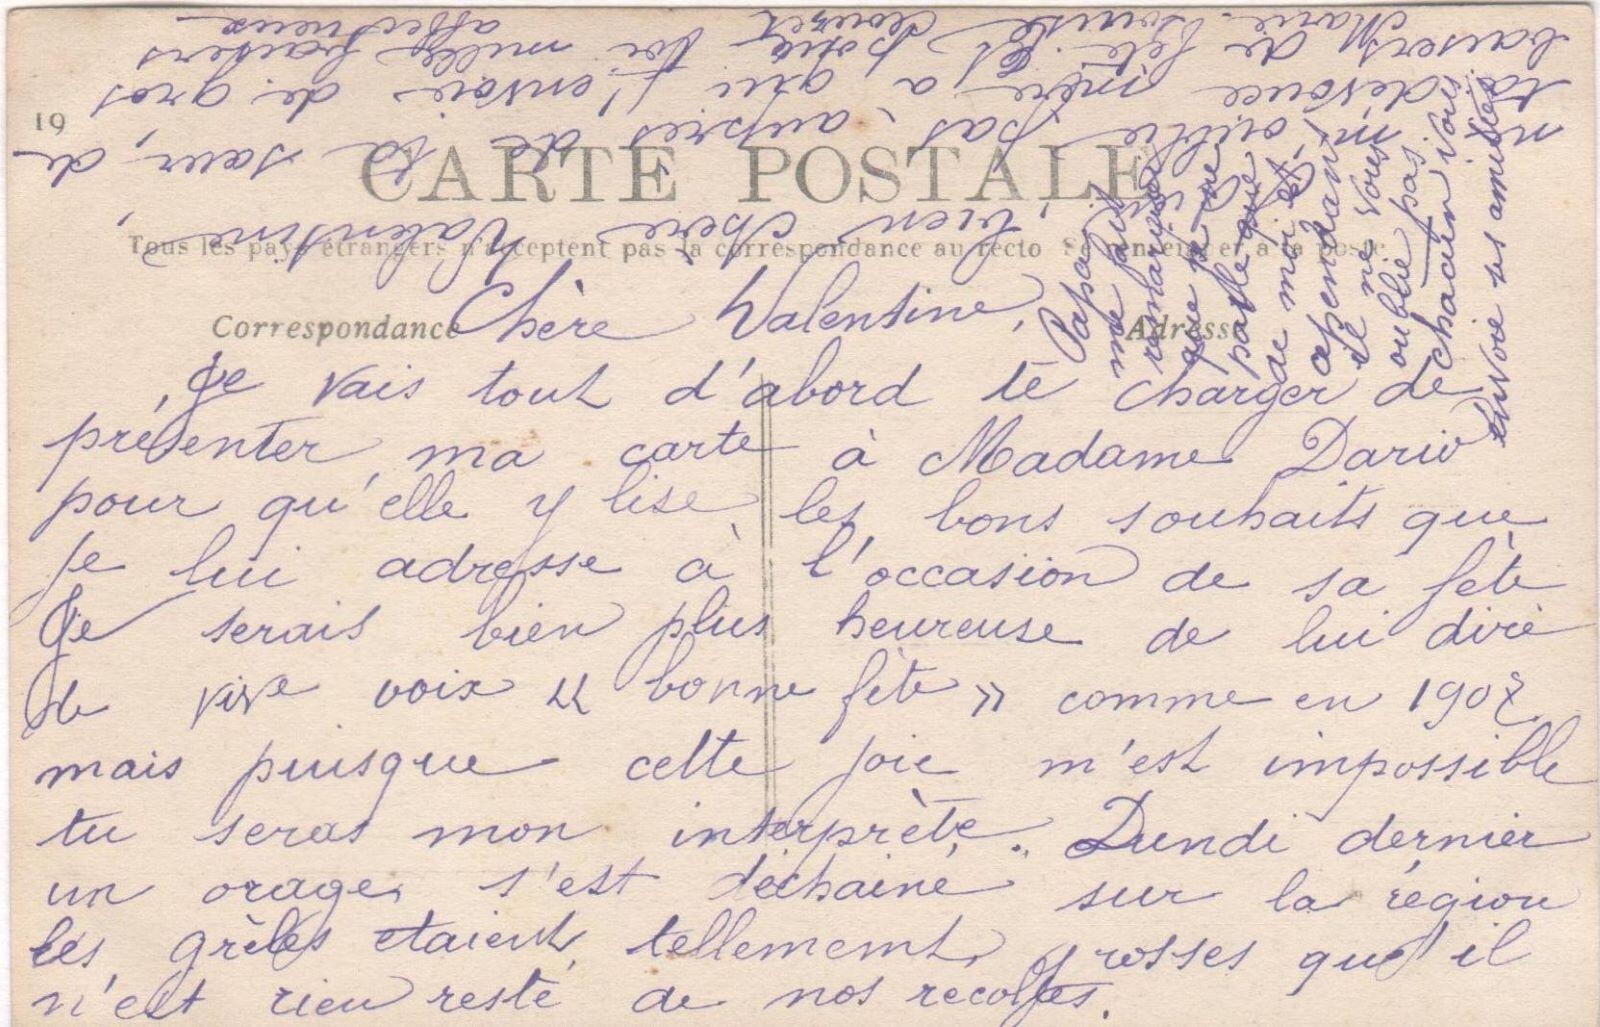 19
CARTE POSTALE
Tous les pays étrangers n'acceptent pas la correspondance au recto Se renseigner à la poste
Correspondance
Adresse
Chère Valentine,
Je vais tout d'abord te charger de
présenter ma carte à Madame Dario
pour qu'elle y lise les bons souhaits que
je lui adresse à l'occasion de sa fête
Je serais bien plus heureuse de lui dire
de vive voix « bonne fête » comme en 1907
mais puisque cette joie m'est impossible
tu seras mon interprète. Lundi dernier
un orage s'est déchainé sur la région
les grèles etaient tellement grosses qu'il
n'est rien resté de nos recoltes.
bien chère Valentine,
n'oublie pas, auprès de ta sœur, de
ta mère a qui j'envoie de gros
baisers de fête Et pour toi mille baisers
affectueux
Marie-Louise
Papa
me fait
remarquer
que je ne
parle que
de moi et
cependant
il ne vous
oublie pas
chacun vous
envoie ses amitiés